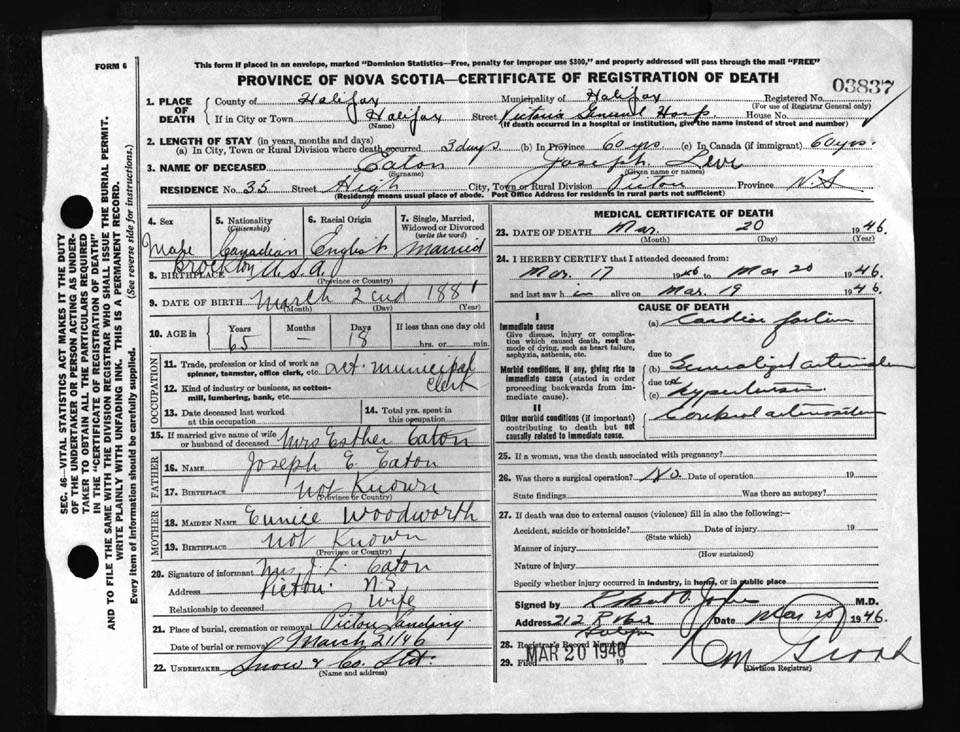 FORM 6
This form if placed in an envelope, marked "Dominion Statistics—Free, penalty for improper use $300," and properly addressed will pass through the mail "FREE"
PROVINCE OF NOVA SCOTIA—CERTIFICATE OF REGISTRATION OF DEATH
03837
1. PLACE OF DEATH
County of Halifax Municipality of Halifax Registered No.
(For use of Registrar General only)
If in City or Town Halifax Street Victoria General Hosp. House No.
(Name) (If death occurred in a hospital or institution, give the name instead of street and number)
2. LENGTH OF STAY (in years, months and days)
(a) In City, Town or Rural Division where death occurred 3 days (b) In Province 60 yrs. (c) In Canada (if immigrant) 60 yrs.
3. NAME OF DECEASED Eaton Joseph Levi
(Surname) (Given name or names)
RESIDENCE No. 35 Street High City, Town or Rural Division Pictou Province N.S
(Residence means usual place of abode. Post Office Address for residents in rural parts not sufficient)
SEC. 46—VITAL STATISTICS ACT MAKES IT THE DUTY
OF THE UNDERTAKER OR PERSON ACTING AS UNDER-
TAKER TO OBTAIN ALL THE PARTICULARS REQUIRED
IN THE "CERTIFICATE OF REGISTRATION OF DEATH"
AND TO FILE THE SAME WITH THE DIVISION REGISTRAR WHO SHALL ISSUE THE BURIAL PERMIT.
WRITE PLAINLY WITH UNFADING INK. THIS IS A PERMANENT RECORD.
Every item of information should be carefully supplied. (See reverse side for instructions.)
4. Sex
Male
5. Nationality
(Citizenship)
Canadian
6. Racial Origin
English
7. Single, Married,
Widowed or Divorced
(write the word)
Married
8. BIRTHPLACE Brockton U.S.A.
(Province or Country)
9. DATE OF BIRTH March 2nd 1881
(Month) (Day) (Year)
10. AGE in
Years Months Days If less than one day old
65 — 18 hrs. or min.
OCCUPATION
11. Trade, profession or kind of work as
spinner, teamster, office clerk, etc. Ret. Municipal
Clerk
12. Kind of industry or business, as cotton-
mill, lumbering, bank, etc.
13. Date deceased last worked
at this occupation
14. Total yrs. spent in
this occupation
15. If married give name of wife
or husband of deceased Mrs Esther Eaton
FATHER
16. NAME Joseph E. Eaton
17. BIRTHPLACE Not Known
(Province or Country)
MOTHER
18. MAIDEN NAME Eunice Woodworth
19. BIRTHPLACE Not Known
(Province or Country)
20. Signature of informant Mrs J. L. Eaton
Address Pictou N.S
Relationship to deceased Wife
21. Place of burial, cremation or removal Pictou Landing
Date of burial or removal March 21/46
22. UNDERTAKER Snow & Co. Ltd.
(Name and address)
MEDICAL CERTIFICATE OF DEATH
23. DATE OF DEATH Mar. 20 1946.
(Month) (Day) (Year)
24. I HEREBY CERTIFY that I attended deceased from:
Mar. 17 1946 to Mar 20 1946.
and last saw him alive on Mar. 19 1946.
CAUSE OF DEATH
I
Immediate cause
Give disease, injury or complica-
tion which caused death, not the
mode of dying, such as heart failure,
asphyxia, asthenia, etc.
Morbid conditions, if any, giving rise to
immediate cause (stated in order
proceeding backwards from im-
mediate cause).
II
Other morbid conditions (if important)
contributing to death but not
causally related to immediate cause.
(a) Cardiac failure
due to
(b) Generalized arteriosclerosis
due to
(c) Hypertension
Cerebral arteriosclerosis
25. If a woman, was the death associated with pregnancy?
26. Was there a surgical operation? No. Date of operation 19
State findings Was there an autopsy?
27. If death was due to external causes (violence) fill in also the following:-
Accident, suicide or homicide? Date of injury 19
(State which)
Manner of injury
(How sustained)
Nature of injury
Specify whether injury occurred in industry, in home, or in public place
Signed by Robert O. Jones M.D.
Address 212 Date Mar 20 1946.
Halifax
28. Registrar's Record Number
29. Filed MAR 20 1946 19
(Division Registrar)